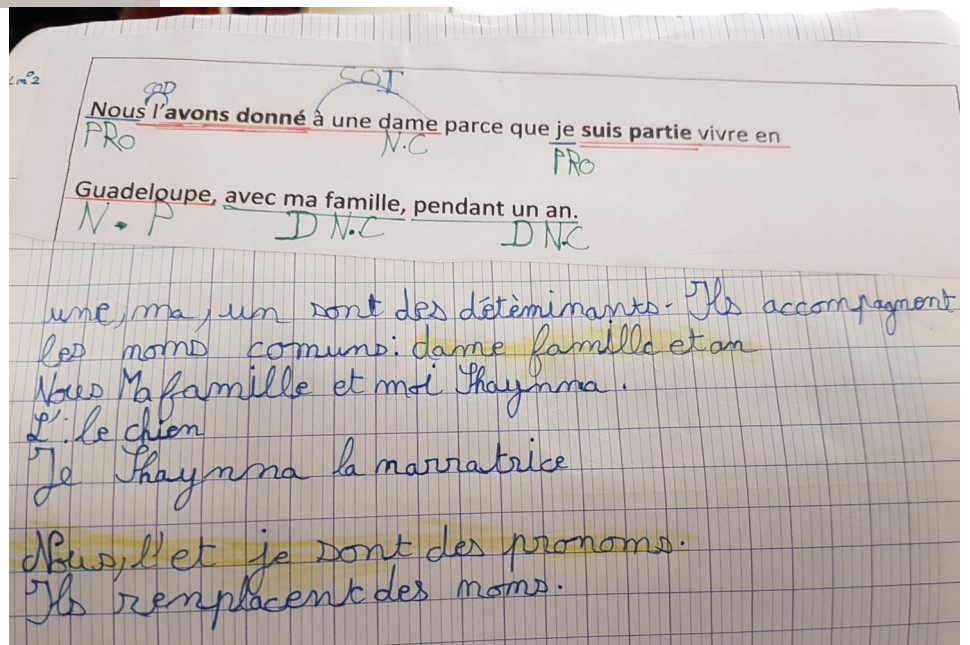 COD COI
Nous l'avons donné à une dame parce que je suis partie vivre en
PRO N.C PRO
Guadeloupe, avec ma famille, pendant un an.
N.P D N.C D NC
une, ma, un sont des détèminants. Ils accompagnent
les noms comuns: dame famille et an
Nous Ma famille et moi Shaynna.
L': le chien
Je Shaynna la narratrice
Nous, l' et je sont des pronoms.
Ils renplacent des noms.